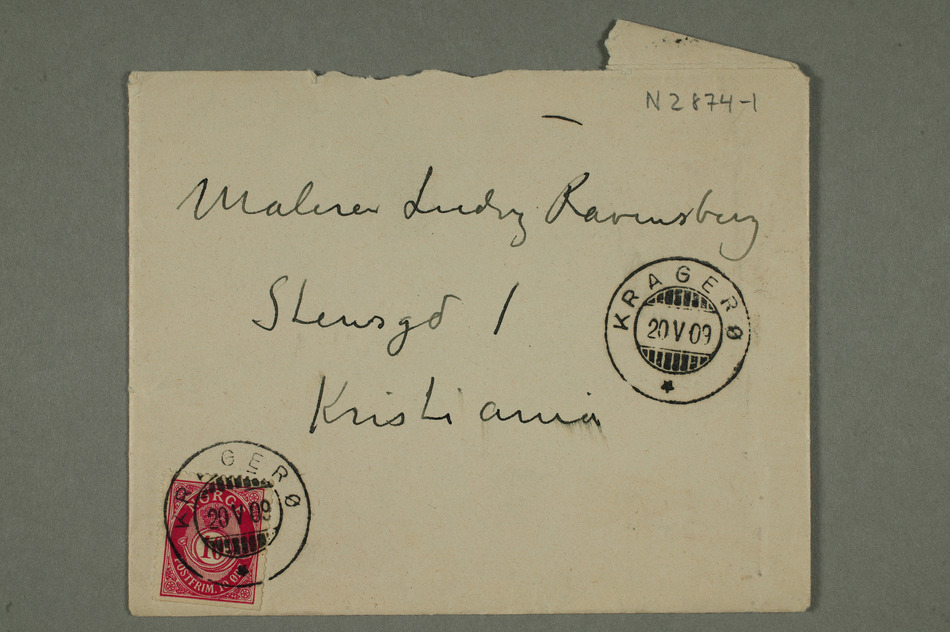 N 2874-1
Maleren Ludvig Ravensberg
Stensgd 1
Kristiania
KRAGERØ
20 V 09
KRAGERØ
20 V 09
NORGE
10
POSTFRIM. 10 ØRE